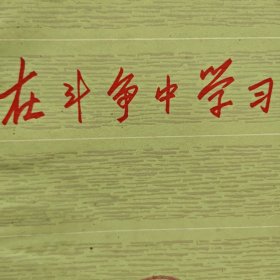 在斗争中学习